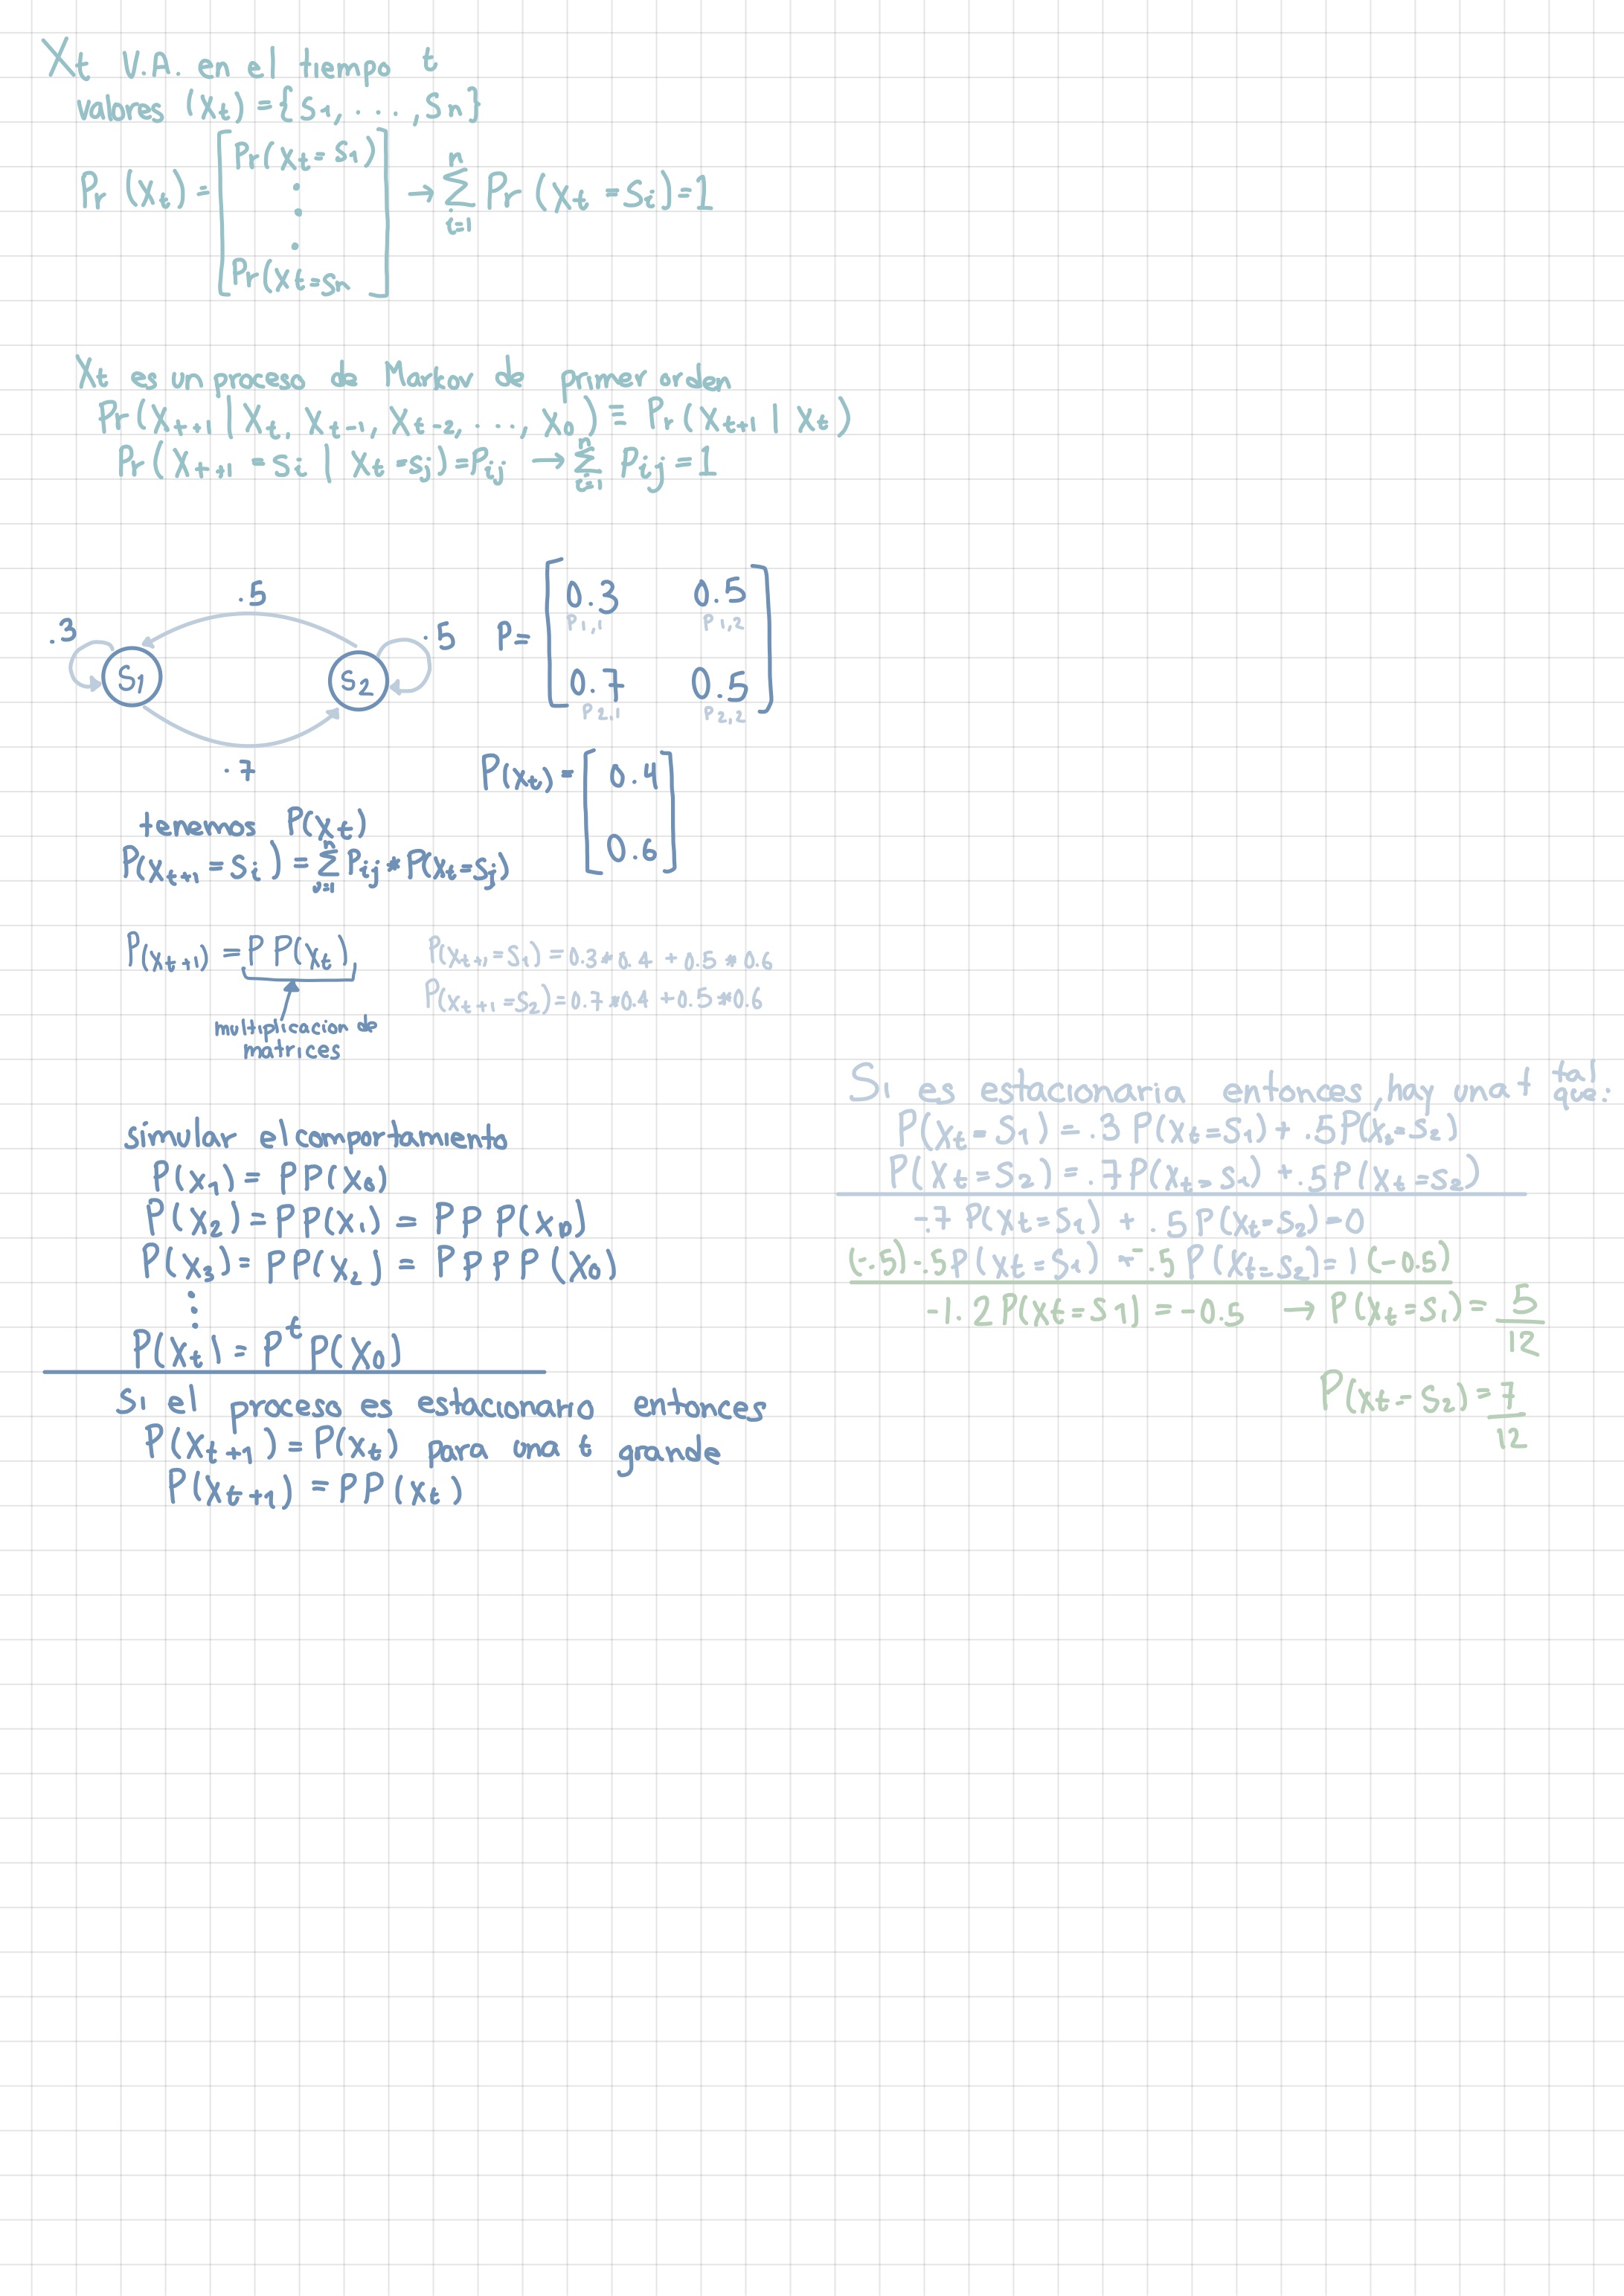 Xt V.A. en el tiempo t
valores (Xt) = {S1, . . . , Sn}
Pr (Xt) = [Pr(Xt = S1) . . . Pr(Xt=Sn] → n Σ i=1 Pr (Xt = Si) = 1
Xt es un proceso de Markov de primer orden
Pr(Xt+1 | Xt, Xt-1, Xt-2, . . . , X0) ≡ Pr(Xt+1 | Xt)
Pr(Xt+1 = Si | Xt = Sj) = Pij → n Σ i=1 Pij = 1
.5
.3
S1
S2
.5
.7
P= [0.3 0.5
P1,1 P1,2
0.7 0.5]
P2,1 P2,2
P(Xt) = [0.4
0.6]
tenemos P(Xt)
P(Xt+1 = Si) = n Σ j=1 Pij * P(Xt=Sj)
P(Xt+1) = P P(Xt)
multiplicacion de
matrices
P(Xt+1 = S1) = 0.3*0.4 + 0.5*0.6
P(Xt+1 = S2) = 0.7*0.4 + 0.5*0.6
simular el comportamiento
P(X1) = PP(X0)
P(X2) = PP(X1) = PPP(X0)
P(X3) = PP(X2) = PPPP(X0)
⋮
P(Xt) = P^t P(X0)
Si el proceso es estacionario entonces
P(Xt+1) = P(Xt) para una t grande
P(Xt+1) = PP(Xt)
Si es estacionaria entonces, hay una t tal que:
P(Xt = S1) = .3 P(Xt=S1) + .5P(X =S2)
P(Xt = S2) = .7P(Xt=S1) + .5P(Xt=S2)
-.7 P(Xt=S1) + .5P(Xt=S2) = 0
(-.5) -.5P(Xt=S1) + -.5 P(Xt=S2) = 1 (-0.5)
-1.2P(Xt=S1) = -0.5 → P(Xt=S1) = 5/12
P(Xt-S2) = 7/12